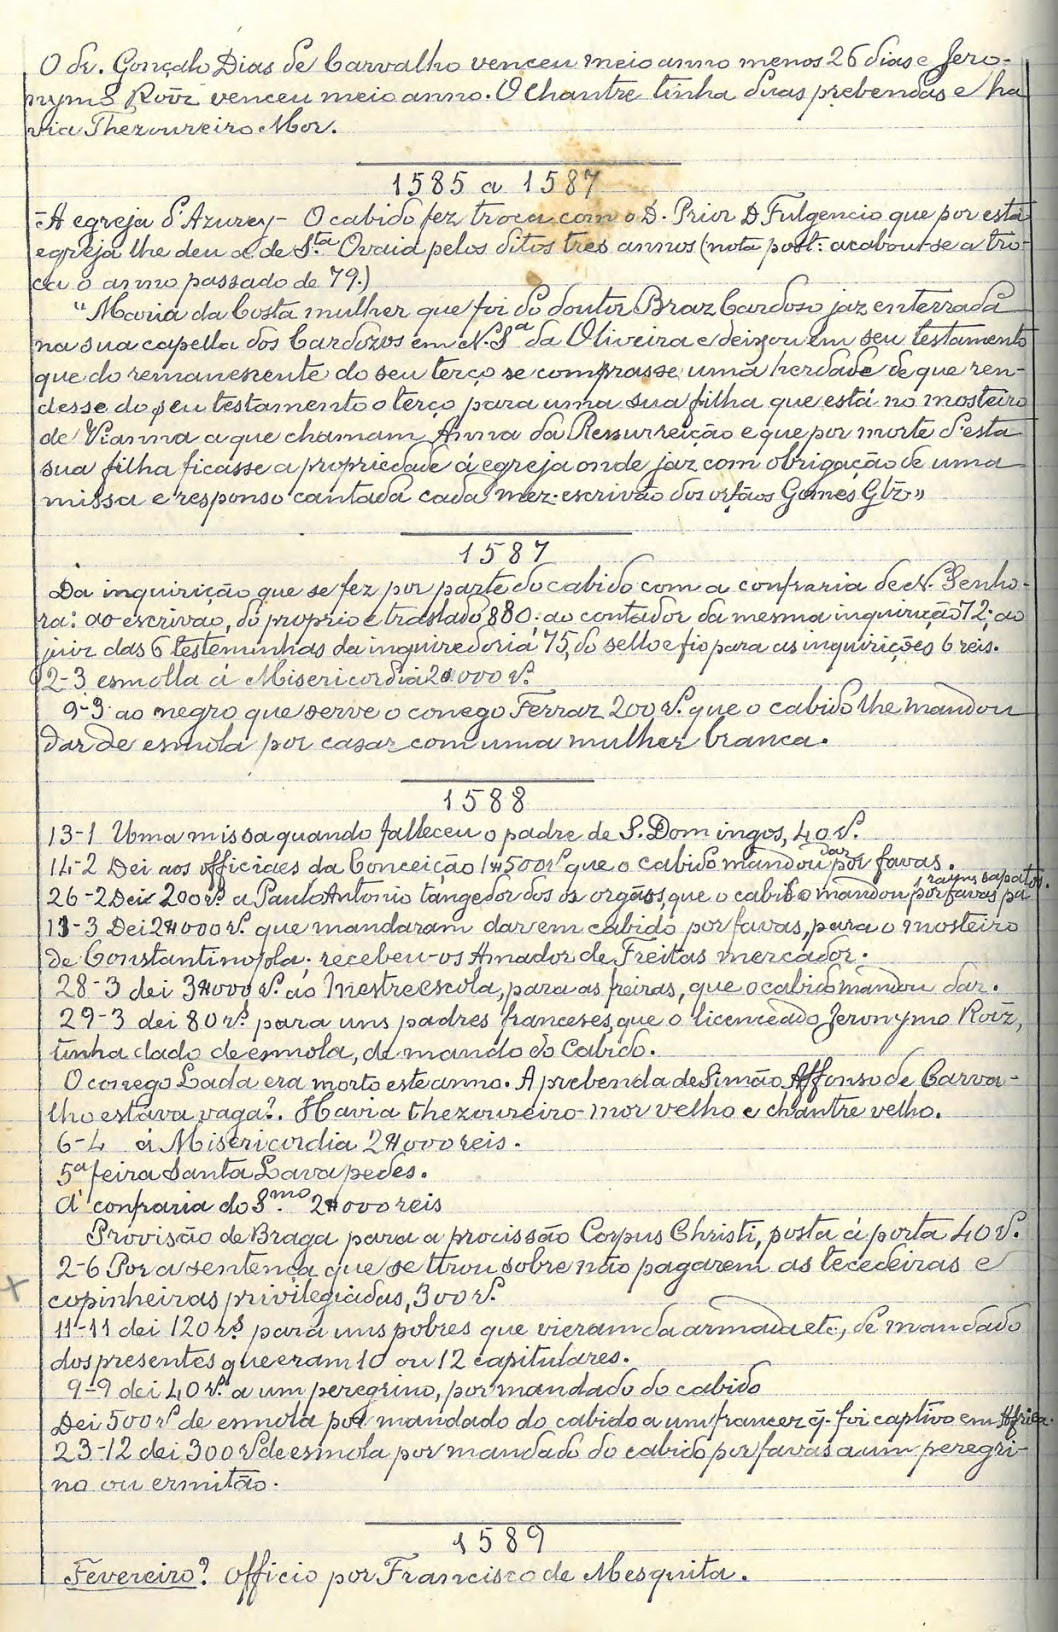 O dr. Gonçalo Dias de Carvalho venceu meio anno menos 26 dias e Jero-
nymo Roīz venceu meio anno. O Chantre tinha duas prebendas e ha
via Thezoureiro Mor.
1585 a 1587
- A egreja d'Azurey - O cabido fez troca com o D. Prior D Fulgencio que por esta
egreja lhe deu a de S.ta Ovaia pelos ditos tres annos (nota post: acabou-se a tro-
ca o anno passado de 79.)
"Maria da Costa mulher que foi do doutor Braz Cardoso jaz enterrada
na sua capella dos Cardozos em N. S.a da Oliveira e deixou em seu testamento
que do remanescente do seu terço se comprasse uma herdade de que ren-
desse do seu testamento o terço para uma sua filha que está no mosteiro
de Vianna a que chamam Anna da Ressurreição e que por morte d'esta
sua filha ficasse a propriedade á egreja onde jaz com obrigação de uma
missa e responso cantada cada mez. escrivão dos orfãos Gomes Glz"
1587
Da inquirição que se fez por parte do cabido com a confraria de N. Senho-
ra: ao escrivão, do proprio e traslado 880; ao contador da mesma inquirição 72; ao
juiz das 6 testeminhas da inquiredoria 75, do sello e fio para as inquirições 6 reis.
2-3 esmolla á Misericordia 2$000 r.s
9-3 ao negro que serve o conego Ferraz 200 r.s que o cabido lhe mandou
dar de esmola por casar com uma mulher branca.
1588
13-1 Uma missa quando falleceu o padre de S. Domingos, 40 r.s
14-2 Dei aos officiaes da Conceição 1$500 r.s que o cabido mandou dar por favas.
26-2 Dei 200 r.s a Paulo Antonio tangedor dos os orgãos, que o cabido mandou por favas pa
ra uns sapatos.
13-3 Dei 2$000 r.s que mandaram dar em cabido por favas, para o mosteiro
de Constantinopla; recebeu-os Amador de Freitas mercador.
28-3 dei 3$000 r.s ao Mestreescola, para as freiras, que o cabido mandou dar.
29-3 dei 80 r.s para uns padres franceses, que o licenceado Jeronymo Roīz,
tinha dado de esmola, de mando do Cabido.
O conego Lada era morto este anno. A prebenda de Simão Affonso de Carva-
lho estava vaga?. Havia thezoureiro-mor velho e chantre velho.
6-4 á Misericordia 2$000 reis.
5ª feira Santa Lava pedes.
Á confraria do S.mo 2$000 reis
Provisão de Braga para a procissão Corpus Christi, posta á porta 40 r.s
2-6 Por a sentença que se tirou sobre não pagarem as tecedeiras e
copinheiras privilegiadas, 300 r.s
11-11 dei 120 r.s para uns pobres que vieram da armada etc, de mandado
dos presentes que eram 10 ou 12 capitulares.
9-9 dei 40 r.s a um peregrino, por mandado do cabido
Dei 500 r.s de esmola por mandado do cabido a um francez q. foi captivo em Africa.
23-12 dei 300 r.s de esmola por mandado do cabido por favas a um peregri-
no ou ermitão.
1589
Fevereiro? officio por Francisco de Mesquita.